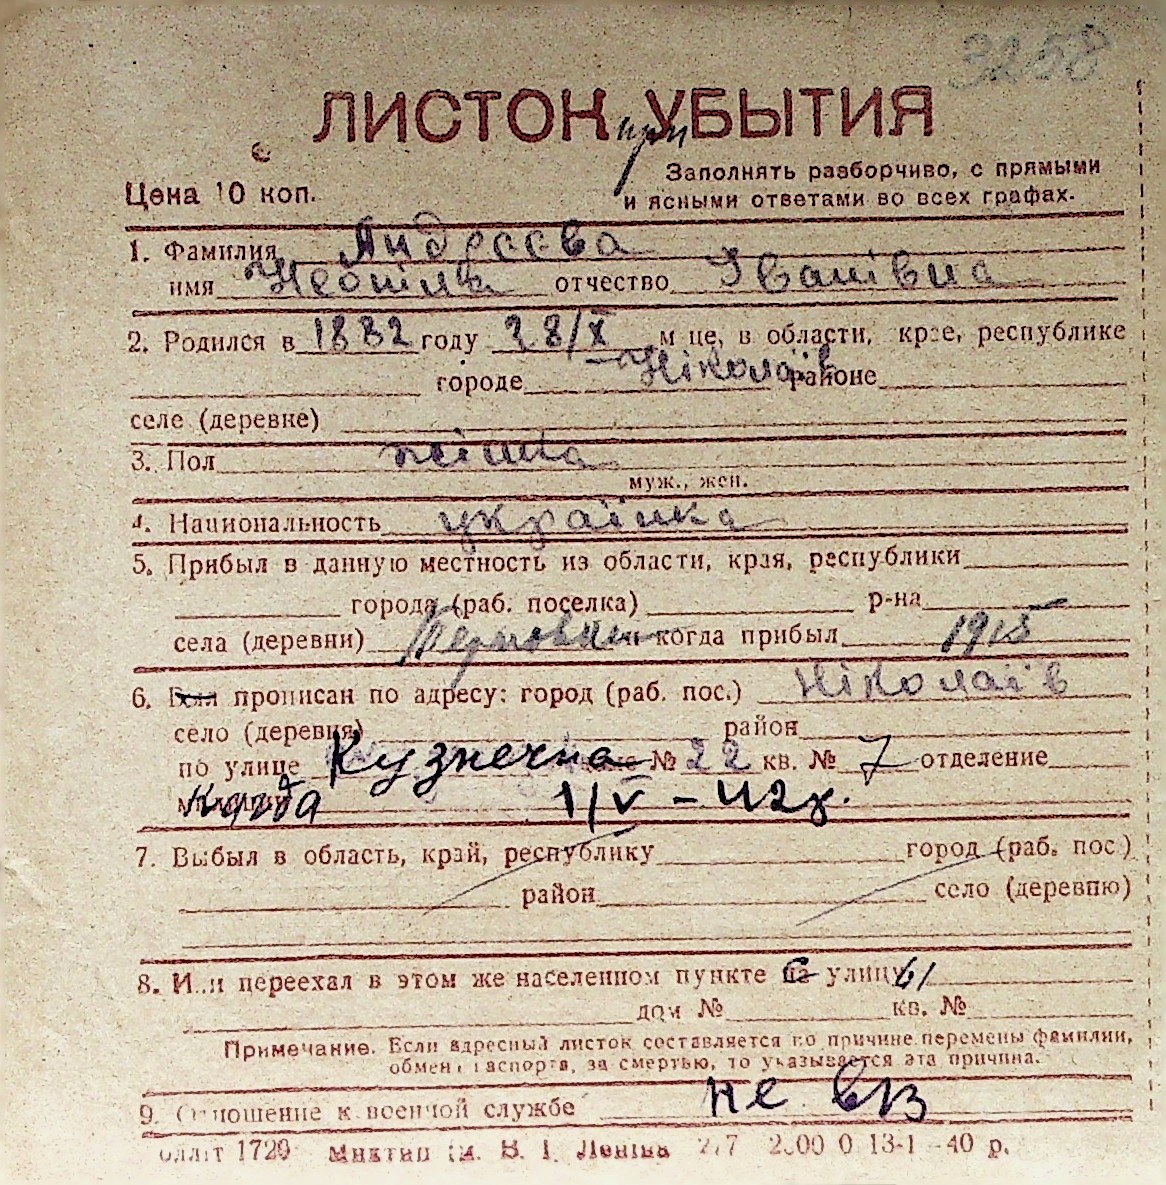 3258
ЛИСТОК УБЫТИЯ
при
Цена 10 коп.
Заполнять разборчиво, с прямыми
и ясными ответами во всех графах.
1. Фамилия Андреєва
имя отчество Іванівна
2. Родился в 1882 году 28/X м це, в области, крае, республике
городе Ніколаїв районе
селе (деревне)
3. Пол жінка
муж., жен.
4. Национальность українка
5. Прибыл в данную местность из области, края, республики
города (раб. поселка) р-на
села (деревни) и когда прибыл 1915
6. Был прописан по адресу: город (раб. пос.) Ніколаїв
село (деревня) район
по улице Кузнечна № 22 кв. № 7 отделение
когда 1/V – 42 г.
7. Выбыл в область, край, республику город (раб. пос.)
район село (деревню)
8. Или переехал в этом же населенном пункте с улицы
дом № кв. №
Примечание. Если адресный листок составляется по причине перемены фамилии,
обмена паспорта, за смертью, то указывается эта причина.
9. Отношение к военной службе не вз
1720 им. В. І. Леніна 13-1 -40 р.